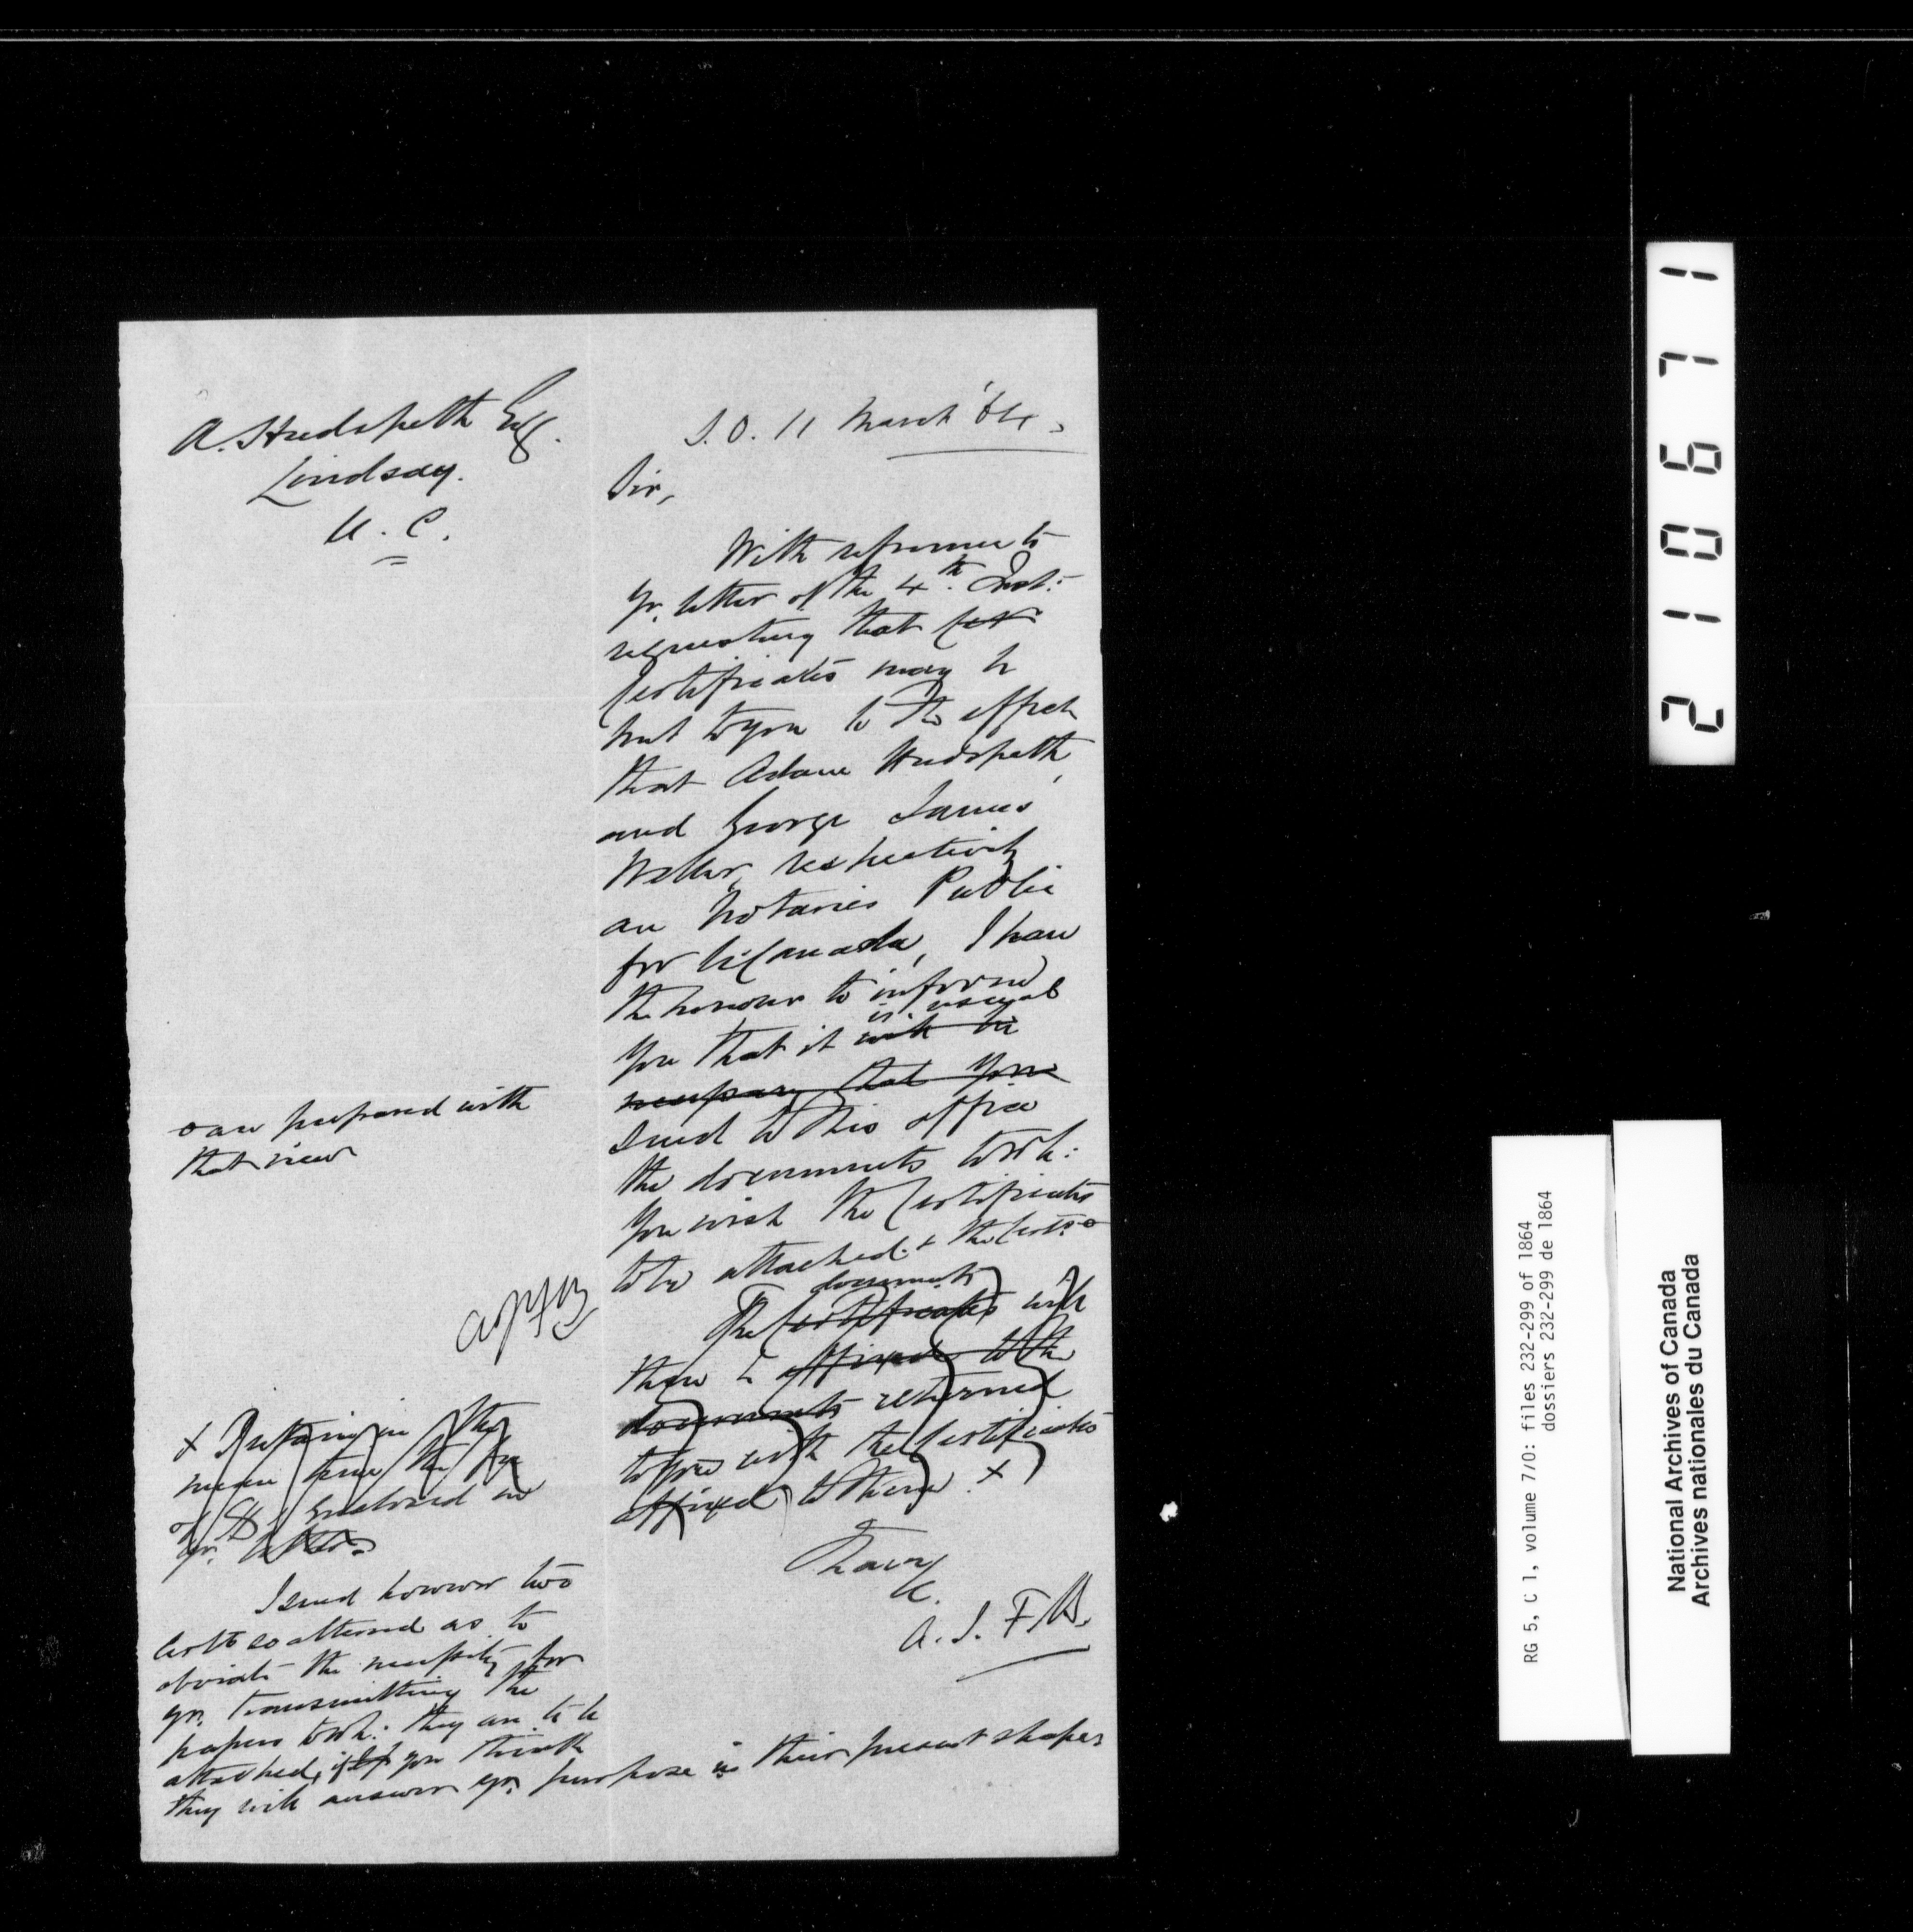 A. Hudspeth Esq.
Lindsay.
U. C.
S.O. 11 March '64.
Sir,
With reference to
yr. letter of the 4th. Inst:
requesting that
Certificates may be
sent to you to the effect
that Adam Hudspeth
and George James
Weller, respectively
are Notaries Public
for U. Canada, I have
the honour to inform
is usual
you that it will be
necessary that you
send to this office
the documents to wh:
you wish the Certificates
to be attached + the Certs. o
o are prepared with
that view
documents
The Certificates will
then be affixed to the
documents returned
to you with the Certificates
affixed to them. x
x Retaining in the
mean time the fee
of $8 enclosed in
yr. letter.
I have
&c.
A. J. F. B.
I send however two
Certs so altered as to
obviate the necessity for
yr. transmitting the
papers to wh: they are to be
attached, if you think
they will answer yr. purpose in their present shape.
2 1 0 6 7 1
RG 5, C 1, volume 7/0: files 232-299 of 1864
dossiers 232-299 de 1864
National Archives of Canada
Archives nationales du Canada